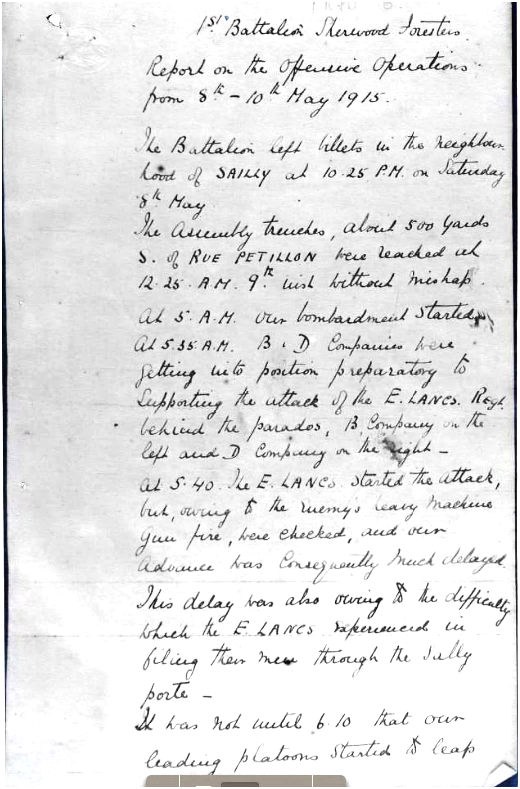 1st Battalion Sherwood Foresters.
Report on the Offensive Operations
from 8th – 10th May 1915.
The Battalion left billets in the neighbour
hood of SAILLY at 10.25 P.M. on Saturday
8th May
The Assembly trenches, about 500 yards
S. of RUE PETILLON were reached at
12.25. A.M. 9th inst without mishap.
At 5. A.M. our bombardment started
At 5.35 A.M. B & D Companies were
getting into position preparatory to
supporting the attack of the E. LANCS. Regt.
behind the parados, B Company on the
left and D Company on the right –
At 5.40. The E. LANCS. started the attack,
but, owing to the Enemy's heavy Machine
Gun fire, were checked, and our
advance was consequently much delayed.
This delay was also owing to the difficulty
which the E. LANCS experienced in
filing their men through the Sally
ports –
It was not until 6.10 that our
leading platoons started to leap